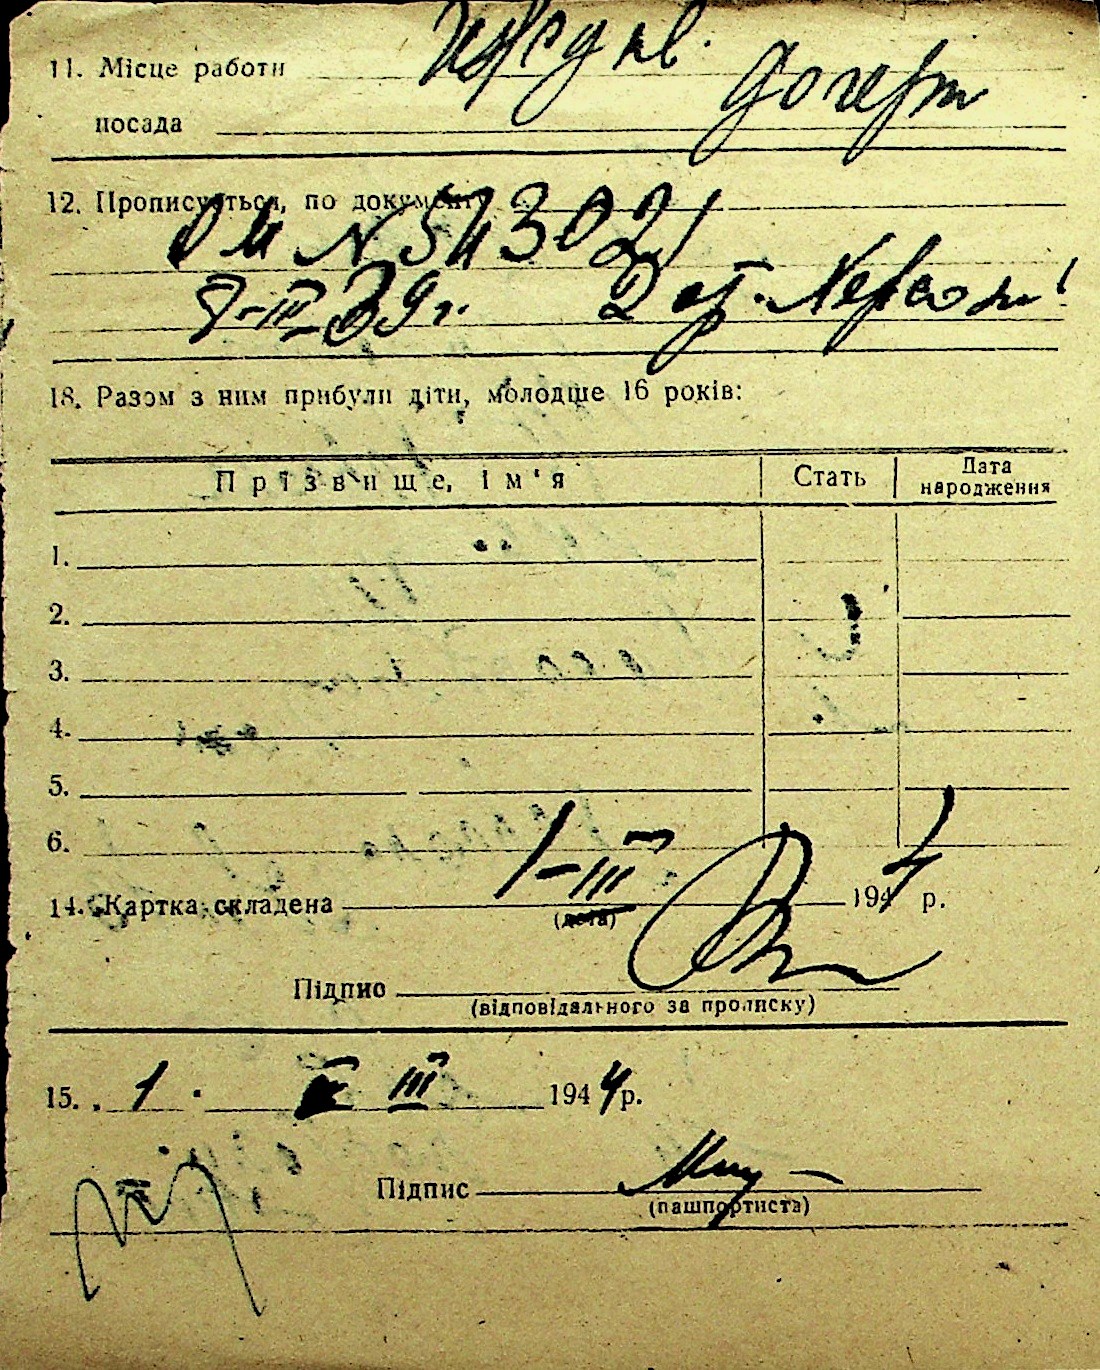 11. Місце работи
дочери
посада
12. Прописується, по документу
ОМ № 543021
8-III-39 г. 2 от. Херсон
18. Разом з ним прибули діти, молодше 16 років:
Прізвище, ім'я Стать Дата народження
1.
2.
3.
4.
5.
6.
1-III
14. Картка складена 1944 р.
(дата)
Підпис
(відповідального за прописку)
15. 1. III 1944 р.
Підпис
(пашпортиста)